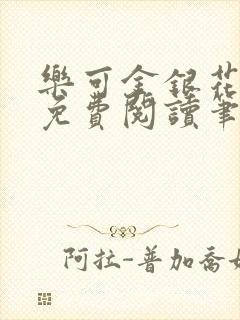 樂可金銀花
免費閱讀筆
阿拉-普加喬